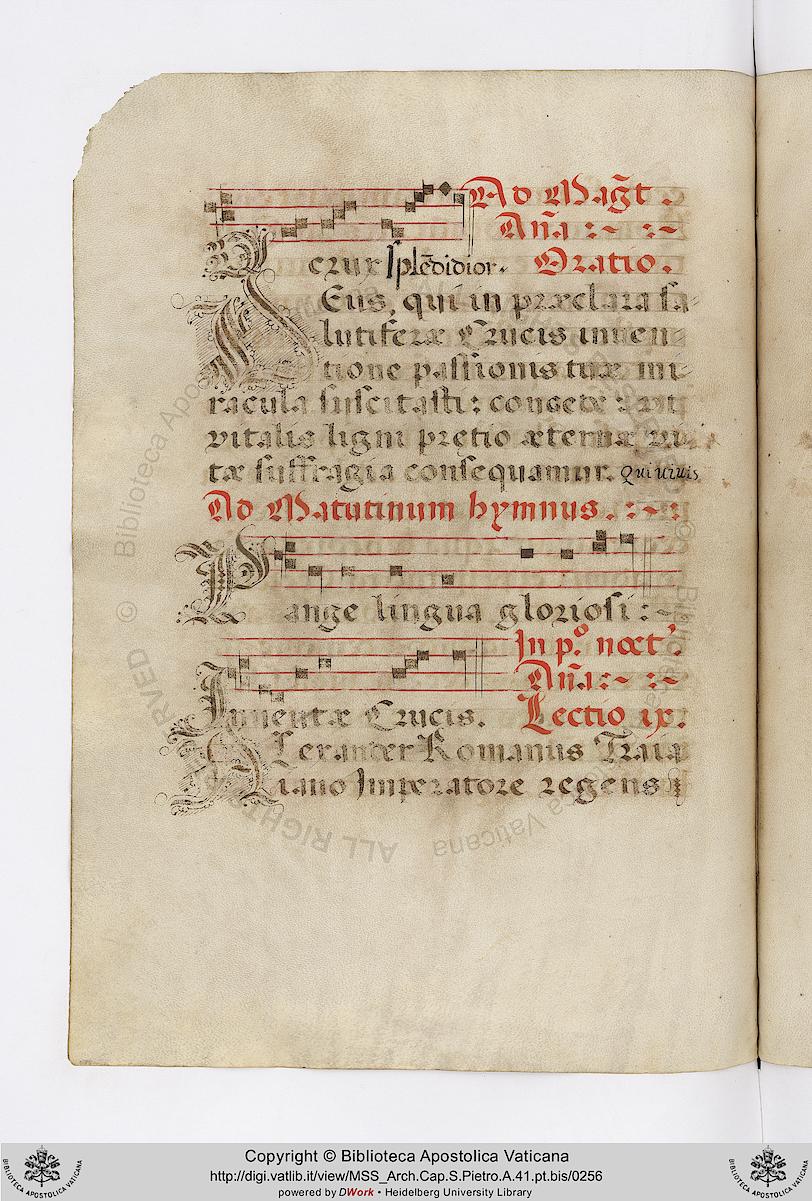 Ad Mag̃t.
An̄a :~ :~
O crux splēdidior. Oratio.
DEus, qui in præclara sa-
lutiferæ Crucis inuen
tione passionis tuæ mi-
racula suscitasti: concede: vt
vitalis ligni pretio æternæ vi
tæ suffragia consequamur. Qui uiuis
Ad Matutinum hymnus. :~:
Pange lingua gloriosi :~
In p.º noct.'
An̄a :~ :~
Inuentæ Crucis. Lectio ix.
ALexander Romanus Traia
iano Imperatore regens
Copyright © Biblioteca Apostolica Vaticana
http://digi.vatlib.it/view/MSS_Arch.Cap.S.Pietro.A.41.pt.bis/0256
powered by DWork • Heidelberg University Library
BIBLIOTECA APOSTOLICA VATICANA
BIBLIOTECA APOSTOLICA VATICANA